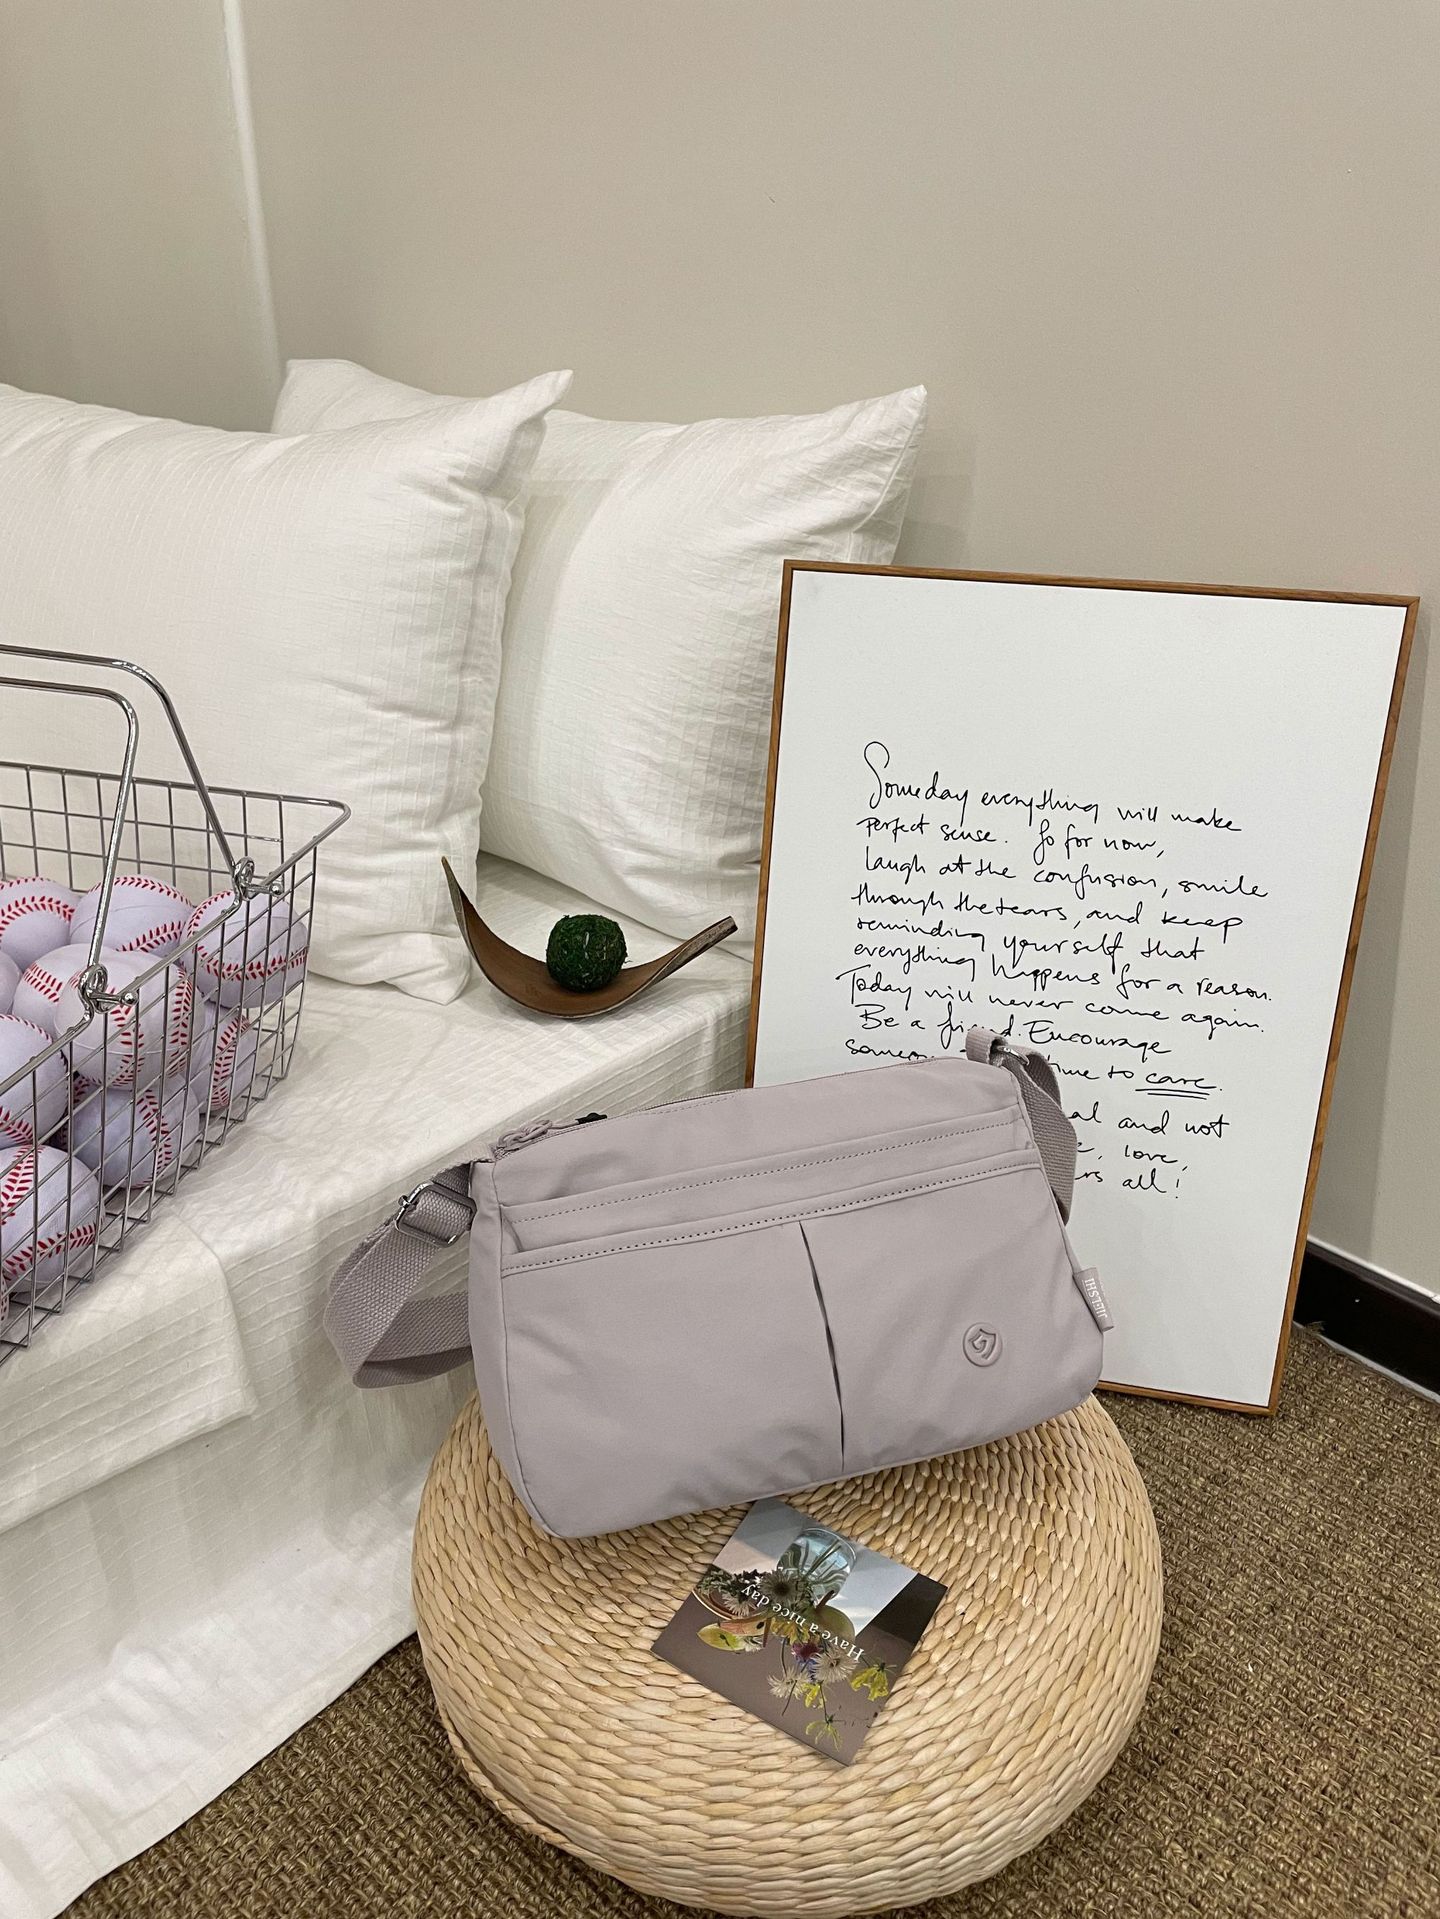 Someday everything will make
perfect sense. So for now,
laugh at the confusion, smile
through the tears, and keep
reminding yourself that
everything happens for a reason.
Today will never come again.
Be a friend. Encourage
time to care.
and not
love,
all!
JIELSHI
Have a nice day